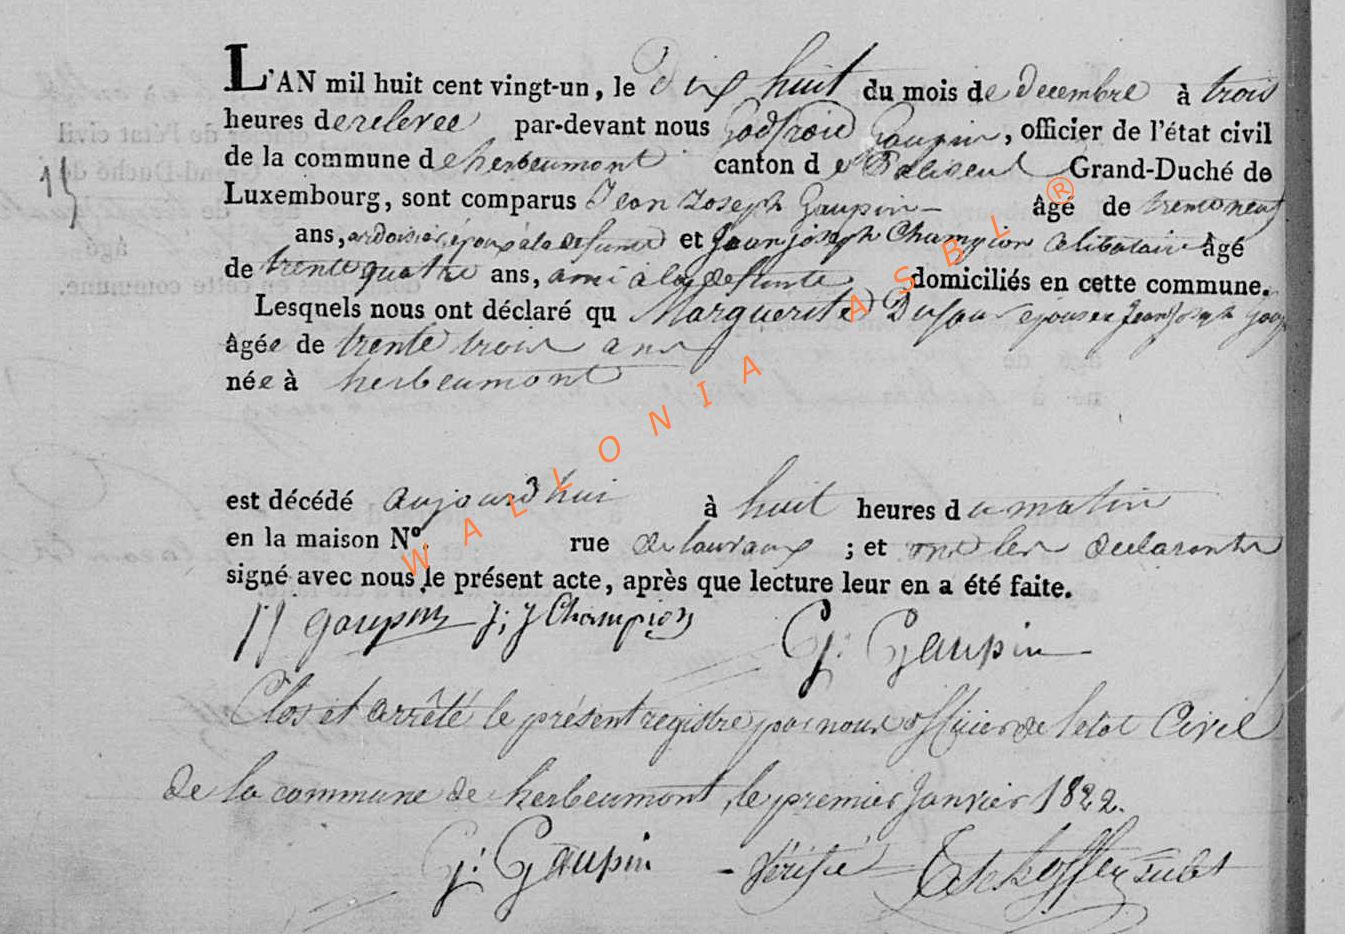 L'AN mil huit cent vingt-un, le dix huit du mois de decembre à trois
heures de relevée par-devant nous Godfroid Gaupin, officier de l'état civil
de la commune de herbeumont canton de Paliseul Grand-Duché de
15
Luxembourg, sont comparus Jean Joseph Gaupin âgé de trente neuf
ans, ardoisier, époux à la defunte et Jean joseph Champion celibataire âgé
de trente quatre ans, ami à la defunte domiciliés en cette commune.
Lesquels nous ont déclaré qu Marguerite Dufour epouse a Jean Joseph
âgée de trente trois ans
née à herbeumont
est décédé aujourd'hui à huit heures du matin
en la maison N°. rue ; et les declarants
signé avec nous le présent acte, après que lecture leur en a été faite.
JJ gaupin J; J Champion G: Gaupin
Clos et arrêté le présent registre par nous officier de l'etat Civil
de la commune de herbeumont, le premier janvier 1822.
G: Gaupin Vérifié
WALLONIA ASBL ®